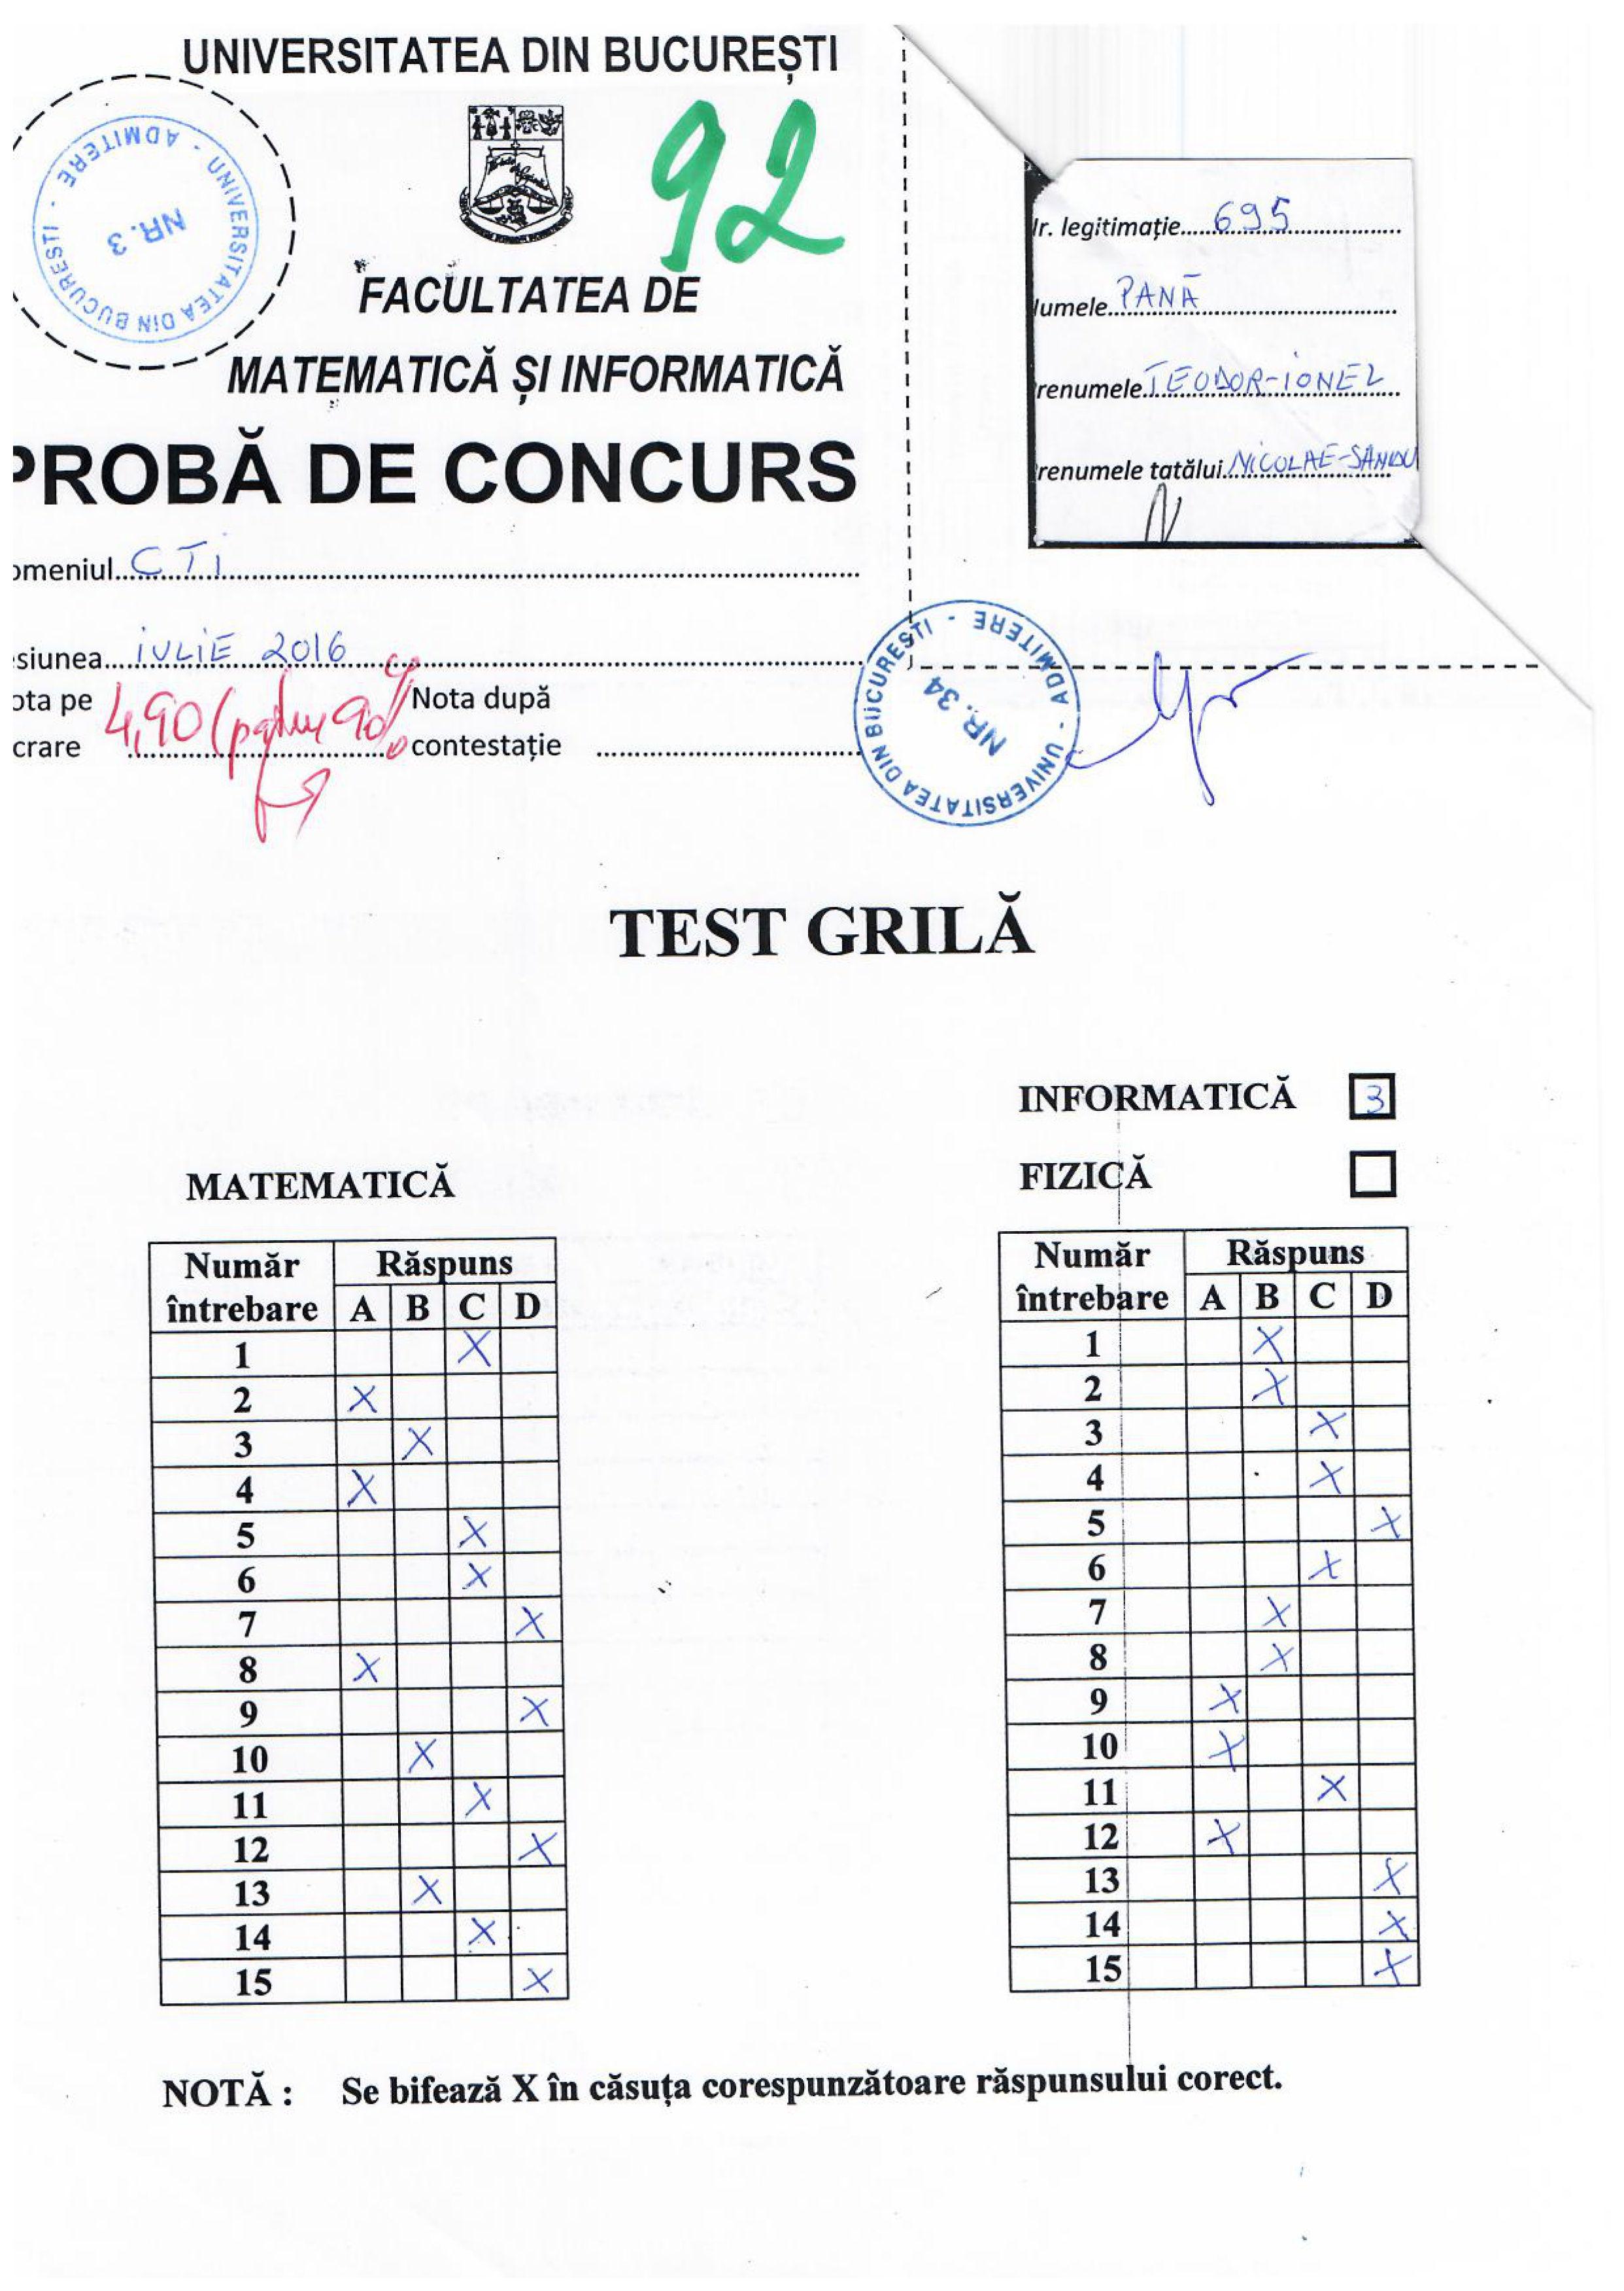 UNIVERSITATEA DIN BUCUREȘTI
ADMITERE - UNIVERSITATEA DIN BUCURESTI -
NR. 3
92
FACULTATEA DE
MATEMATICĂ ȘI INFORMATICĂ
PROBĂ DE CONCURS
omeniul CTI
siunea iULiE 2016
ota pe
crare
4,90 (patru 90%)
Nota după
contestație
Nr. legitimație 695
Numele PANĂ
renumele TEODOR-iONEL
renumele tatălui NiCOLAE-SANDU
ADMITERE - UNIVERSITATEA DIN BUCURESTI -
NR. 34
TEST GRILĂ
INFORMATICĂ 3
FIZICĂ
MATEMATICĂ
Număr întrebare Răspuns
A B C D
1 X
2 X
3 X
4 X
5 X
6 X
7 X
8 X
9 X
10 X
11 X
12 X
13 X
14 X
15 X
Număr întrebare Răspuns
A B C D
1 X
2 X
3 X
4 X
5 X
6 X
7 X
8 X
9 X
10 X
11 X
12 X
13 X
14 X
15 X
NOTĂ : Se bifează X în căsuța corespunzătoare răspunsului corect.